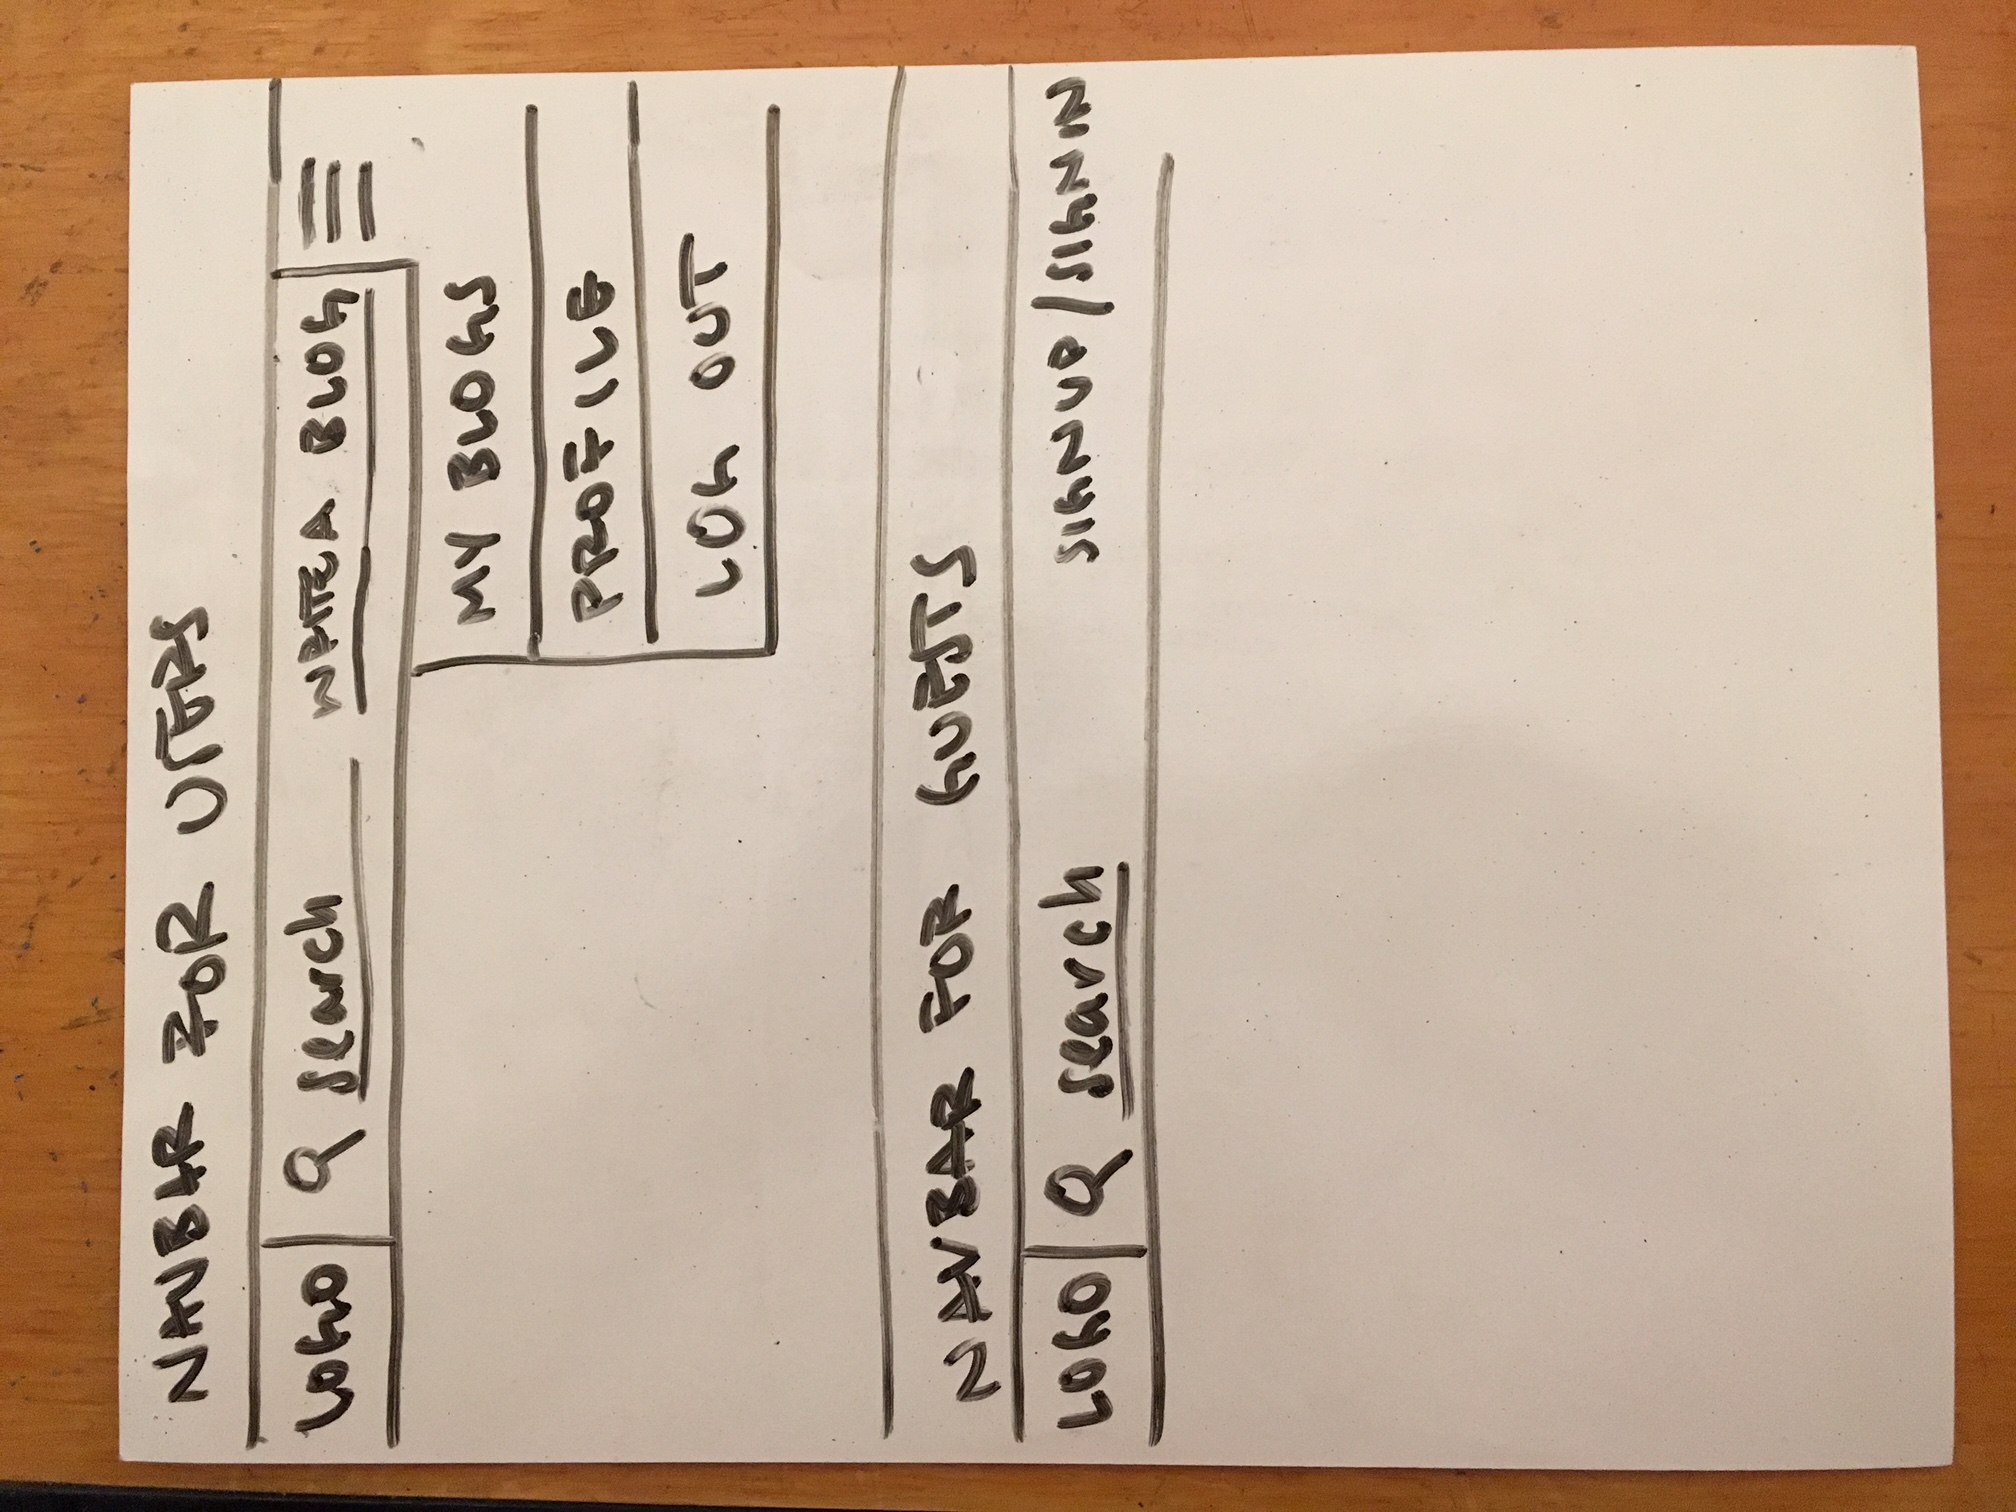 NAVBAR FOR USERS
LOGO search WRITE A BLOG
MY BLOGS
PROFILE
LOG OUT
NAVBAR FOR GUESTS
LOGO search SIGNUP/SIGNIN